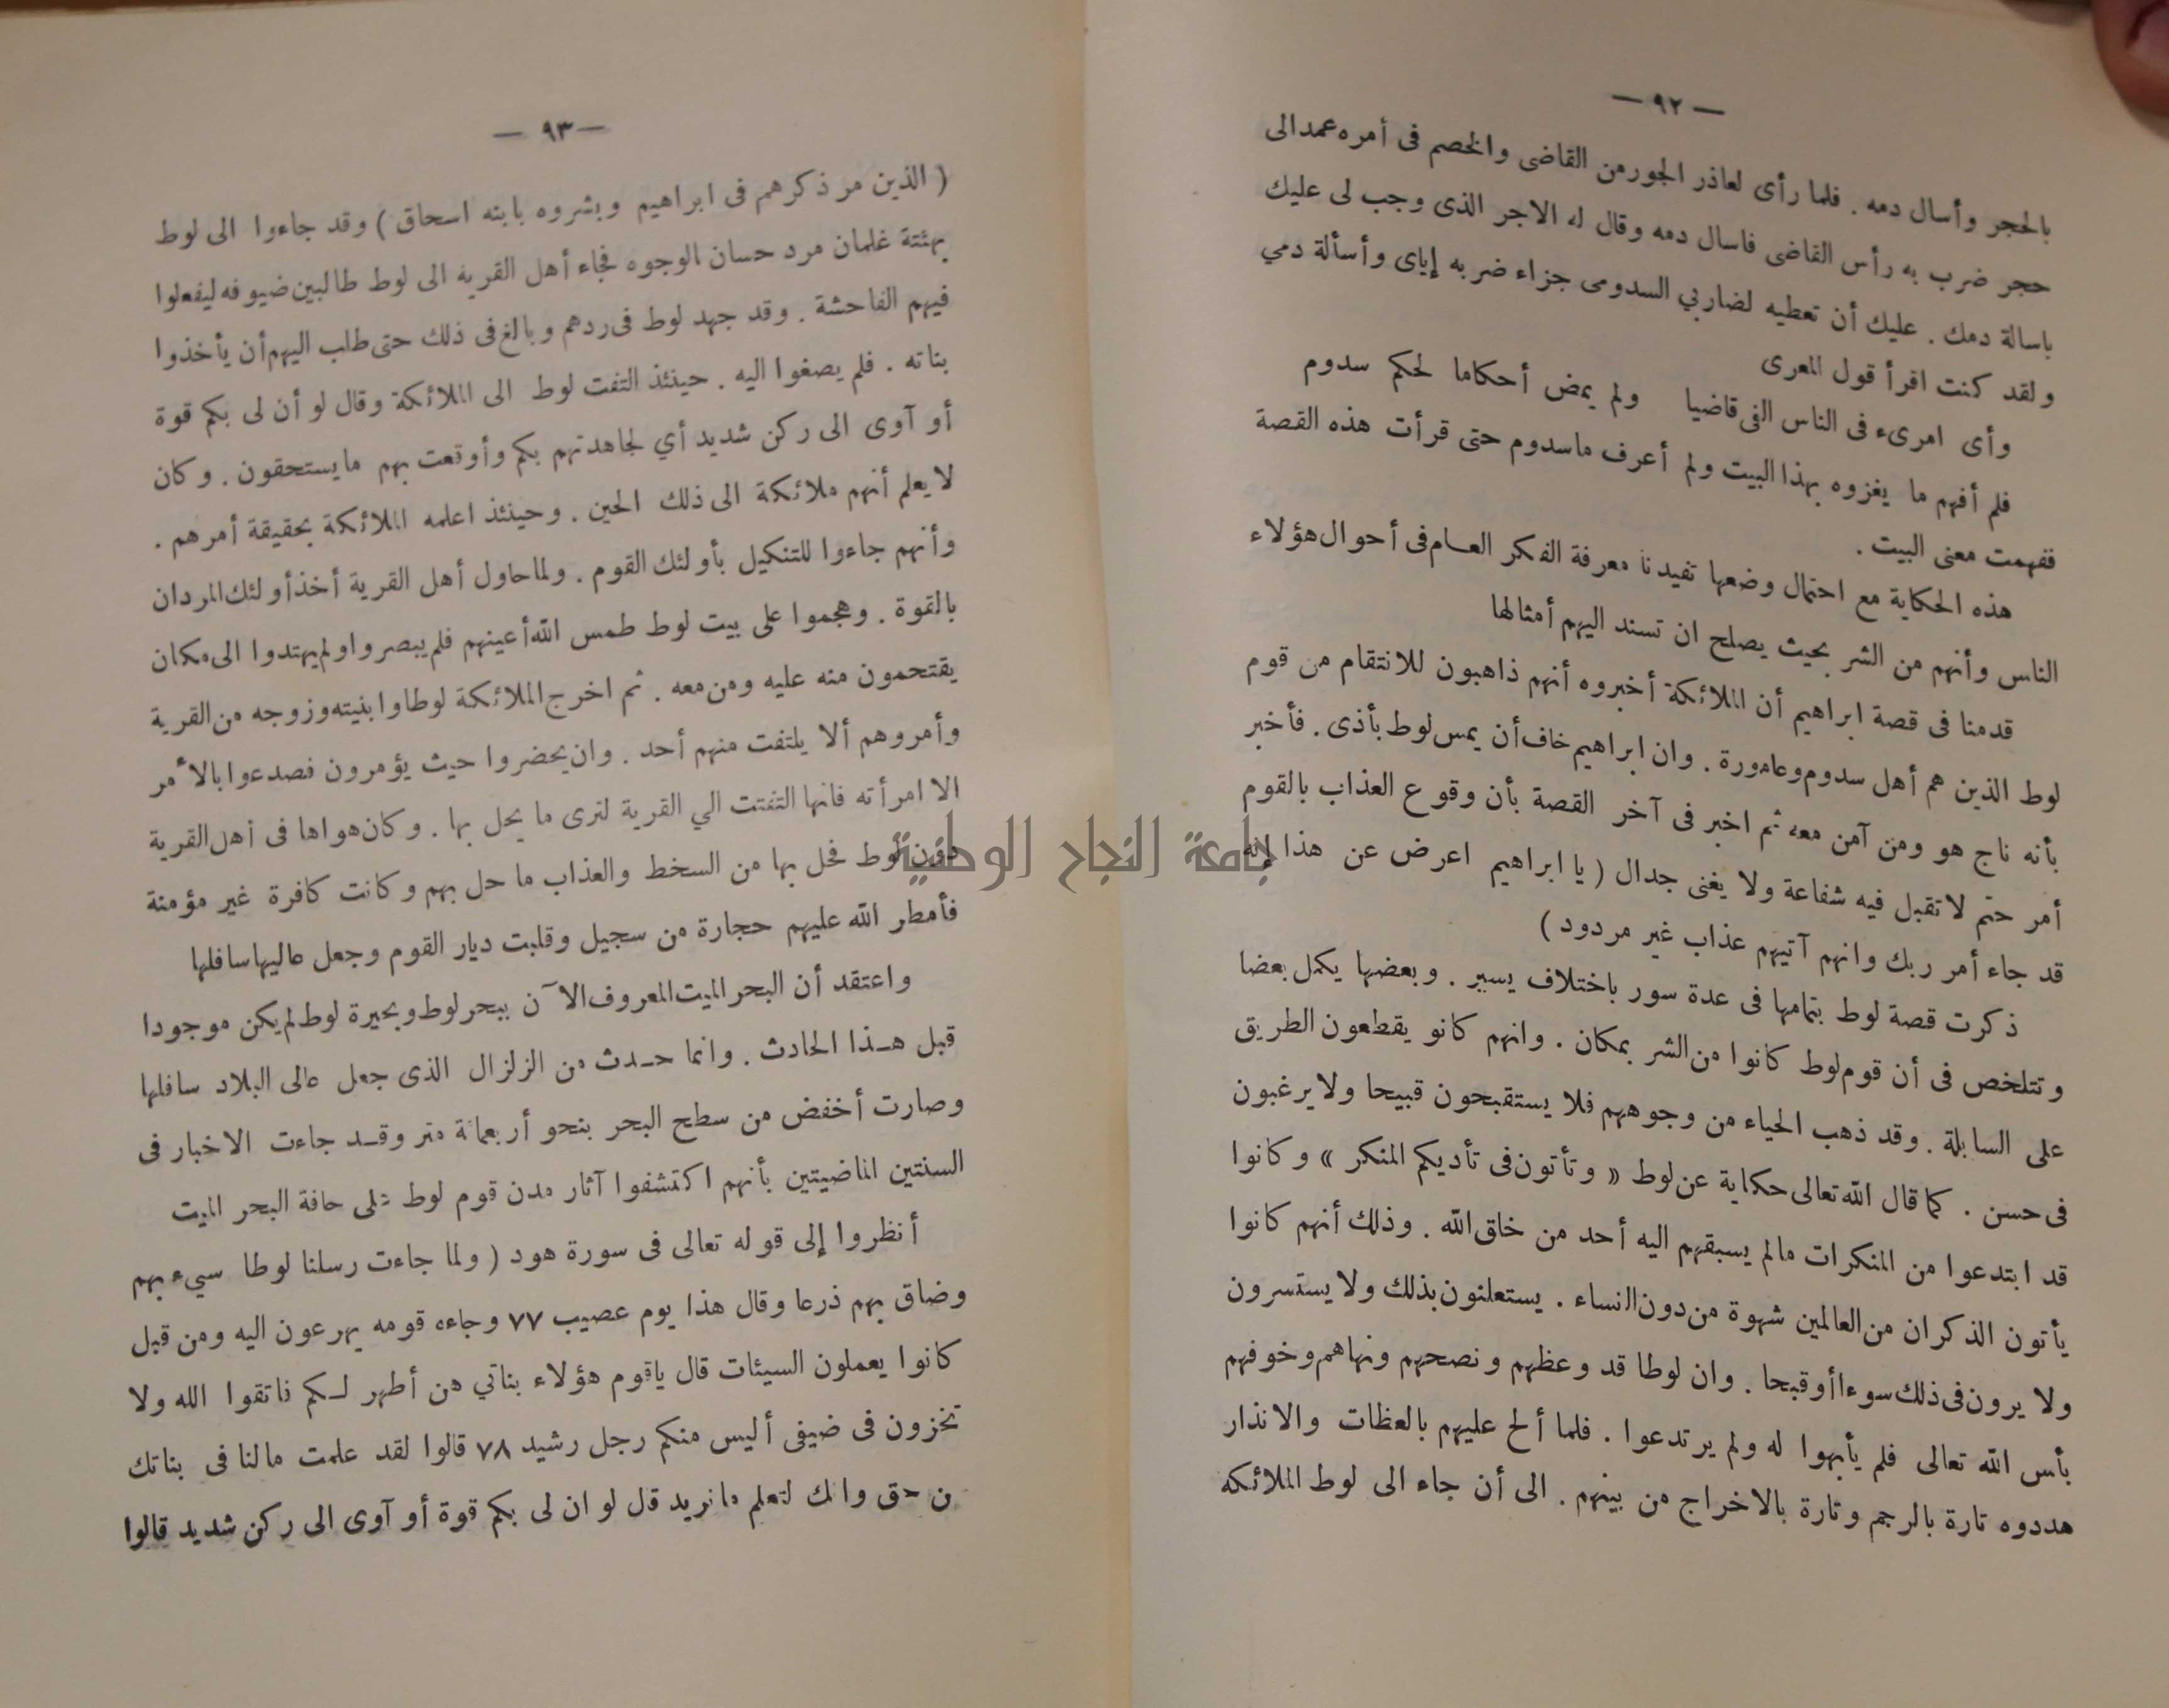 — ٩٢ —
بالحجر وأسال دمه . فلما رأى لعاذر الجور من القاضى والخصم فى أمره عمد الى
حجر ضرب به رأس القاضى فاسال دمه وقال له الاجر الذى وجب لى عليك
باسالة دمك . عليك أن تعطيه لضاربي السدومى جزاء ضربه إياى وأسألة دمي
ولقد كنت اقرأ قول المعرى
وأى امرىء فى الناس الفى قاضيا ولم يمض أحكاما لحكم سدوم
فلم أفهم ما يغزوه بهذا البيت ولم أعرف ماسدوم حتى قرأت هذه القصة
ففهمت معنى البيت .
هذه الحكاية مع احتمال وضعها تفيدنا معرفة الفكر العام فى أحوال هؤلاء
الناس وأنهم من الشر بحيث يصلح ان تسند اليهم أمثالها
قدمنا فى قصة ابراهيم أن الملائكة أخبروه أنهم ذاهبون للانتقام من قوم
لوط الذين هم أهل سدوم وعامورة . وان ابراهيم خاف أن يمس لوط بأذى . فأخبر
بأنه ناج هو ومن آمن معه ثم اخبر فى آخر القصة بأن وقوع العذاب بالقوم
أمر حتم لا تقبل فيه شفاعة ولا يغنى جدال ( يا ابراهيم اعرض عن هذا إنه
قد جاء أمر ربك وانهم آتيهم عذاب غير مردود )
ذكرت قصة لوط بتمامها فى عدة سور باختلاف يسير . وبعضها يكمل بعضا
وتتلخص فى أن قوم لوط كانوا من الشر بمكان . وانهم كانو يقطعون الطريق
على السابلة . وقد ذهب الحياء من وجوههم فلا يستقبحون قبيحا ولا يرغبون
فى حسن . كما قال الله تعالى حكاية عن لوط « وتأتون فى تأديكم المنكر » وكانوا
قد ابتدعوا من المنكرات مالم يسبقهم اليه أحد من خاق الله . وذلك أنهم كانوا
يأتون الذكران من العالمين شهوة من دون النساء . يستعلنون بذلك ولا يستسرون
ولا يرون فى ذلك سوءا أو قبحا . وان لوطا قد وعظهم ونصحهم ونهاهم وخوفهم
بأس الله تعالى فلم يأبهوا له ولم يرتدعوا . فلما ألح عليهم بالعظات والانذار
هددوه تارة بالرجم وتارة بالاخراج من بينهم . الى أن جاء الى لوط الملائكه
— ٩٣ —
( الذين مر ذكرهم فى ابراهيم وبشروه بابنه اسحاق ) وقد جاءوا الى لوط
بهئتة غلمان مرد حسان الوجوه فجاء أهل القرية الى لوط طالبين ضيوفه ليفعلوا
فيهم الفاحشة . وقد جهد لوط فى ردهم وبالغ فى ذلك حتى طلب اليهم أن يأخذوا
بناته . فلم يصغوا اليه . حينئذ التفت لوط الى الملائكة وقال لو أن لى بكم قوة
أو آوى الى ركن شديد أي لجاهدتهم بكم وأوقعت بهم مايستحقون . وكان
لايعلم أنهم ملائكة الى ذلك الحين . وحينئذ اعلمه الملائكة بحقيقة أمرهم .
وأنهم جاءوا للتنكيل بأولئك القوم . ولما حاول أهل القرية أخذ أولئك المردان
بالقوة . وهجموا على بيت لوط طمس الله أعينهم فلم يبصروا ولم يهتدوا الى مكان
يقتحمون منه عليه ومن معه . ثم اخرج الملائكة لوطا وابنيته وزوجه من القرية
وأمروهم ألا يلتفت منهم أحد . وان يحضروا حيث يؤمرون فصدعوا بالأمر
الا امرأته فانها التفتت الي القرية لترى ما يحل بها . وكان هواها فى أهل القرية
دون لوط فحل بها من السخط والعذاب ما حل بهم وكانت كافرة غير مؤمنة
فأمطر الله عليهم حجارة من سجيل وقلبت ديار القوم وجعل عاليها سافلها
واعتقد أن البحر الميت المعروف الآن ببحر لوط وبحيرة لوط لم يكن موجودا
قبل هذا الحادث . وانما حدث من الزلزال الذى جعل عالى البلاد سافلها
وصارت أخفض من سطح البحر بنحو أربعمائة متر وقد جاءت الاخبار فى
السنتين الماضيتين بأنهم اكتشفوا آثار مدن قوم لوط على حافة البحر الميت
أنظروا إلى قوله تعالى فى سورة هود ( ولما جاءت رسلنا لوطا سيء بهم
وضاق بهم ذرعا وقال هذا يوم عصيب ٧٧ وجاءه قومه يهرعون اليه ومن قبل
كانوا يعملون السيئات قال ياقوم هؤلاء بناتي هن أطهر لكم فاتقوا الله ولا
تخزون فى ضيفى أليس منكم رجل رشيد ٧٨ قالوا لقد علمت مالنا فى بناتك
ن حق وانك لتعلم مانريد قل لو ان لى بكم قوة أو آوى الى ركن شديد قالوا
جامعة النجاح الوطنية